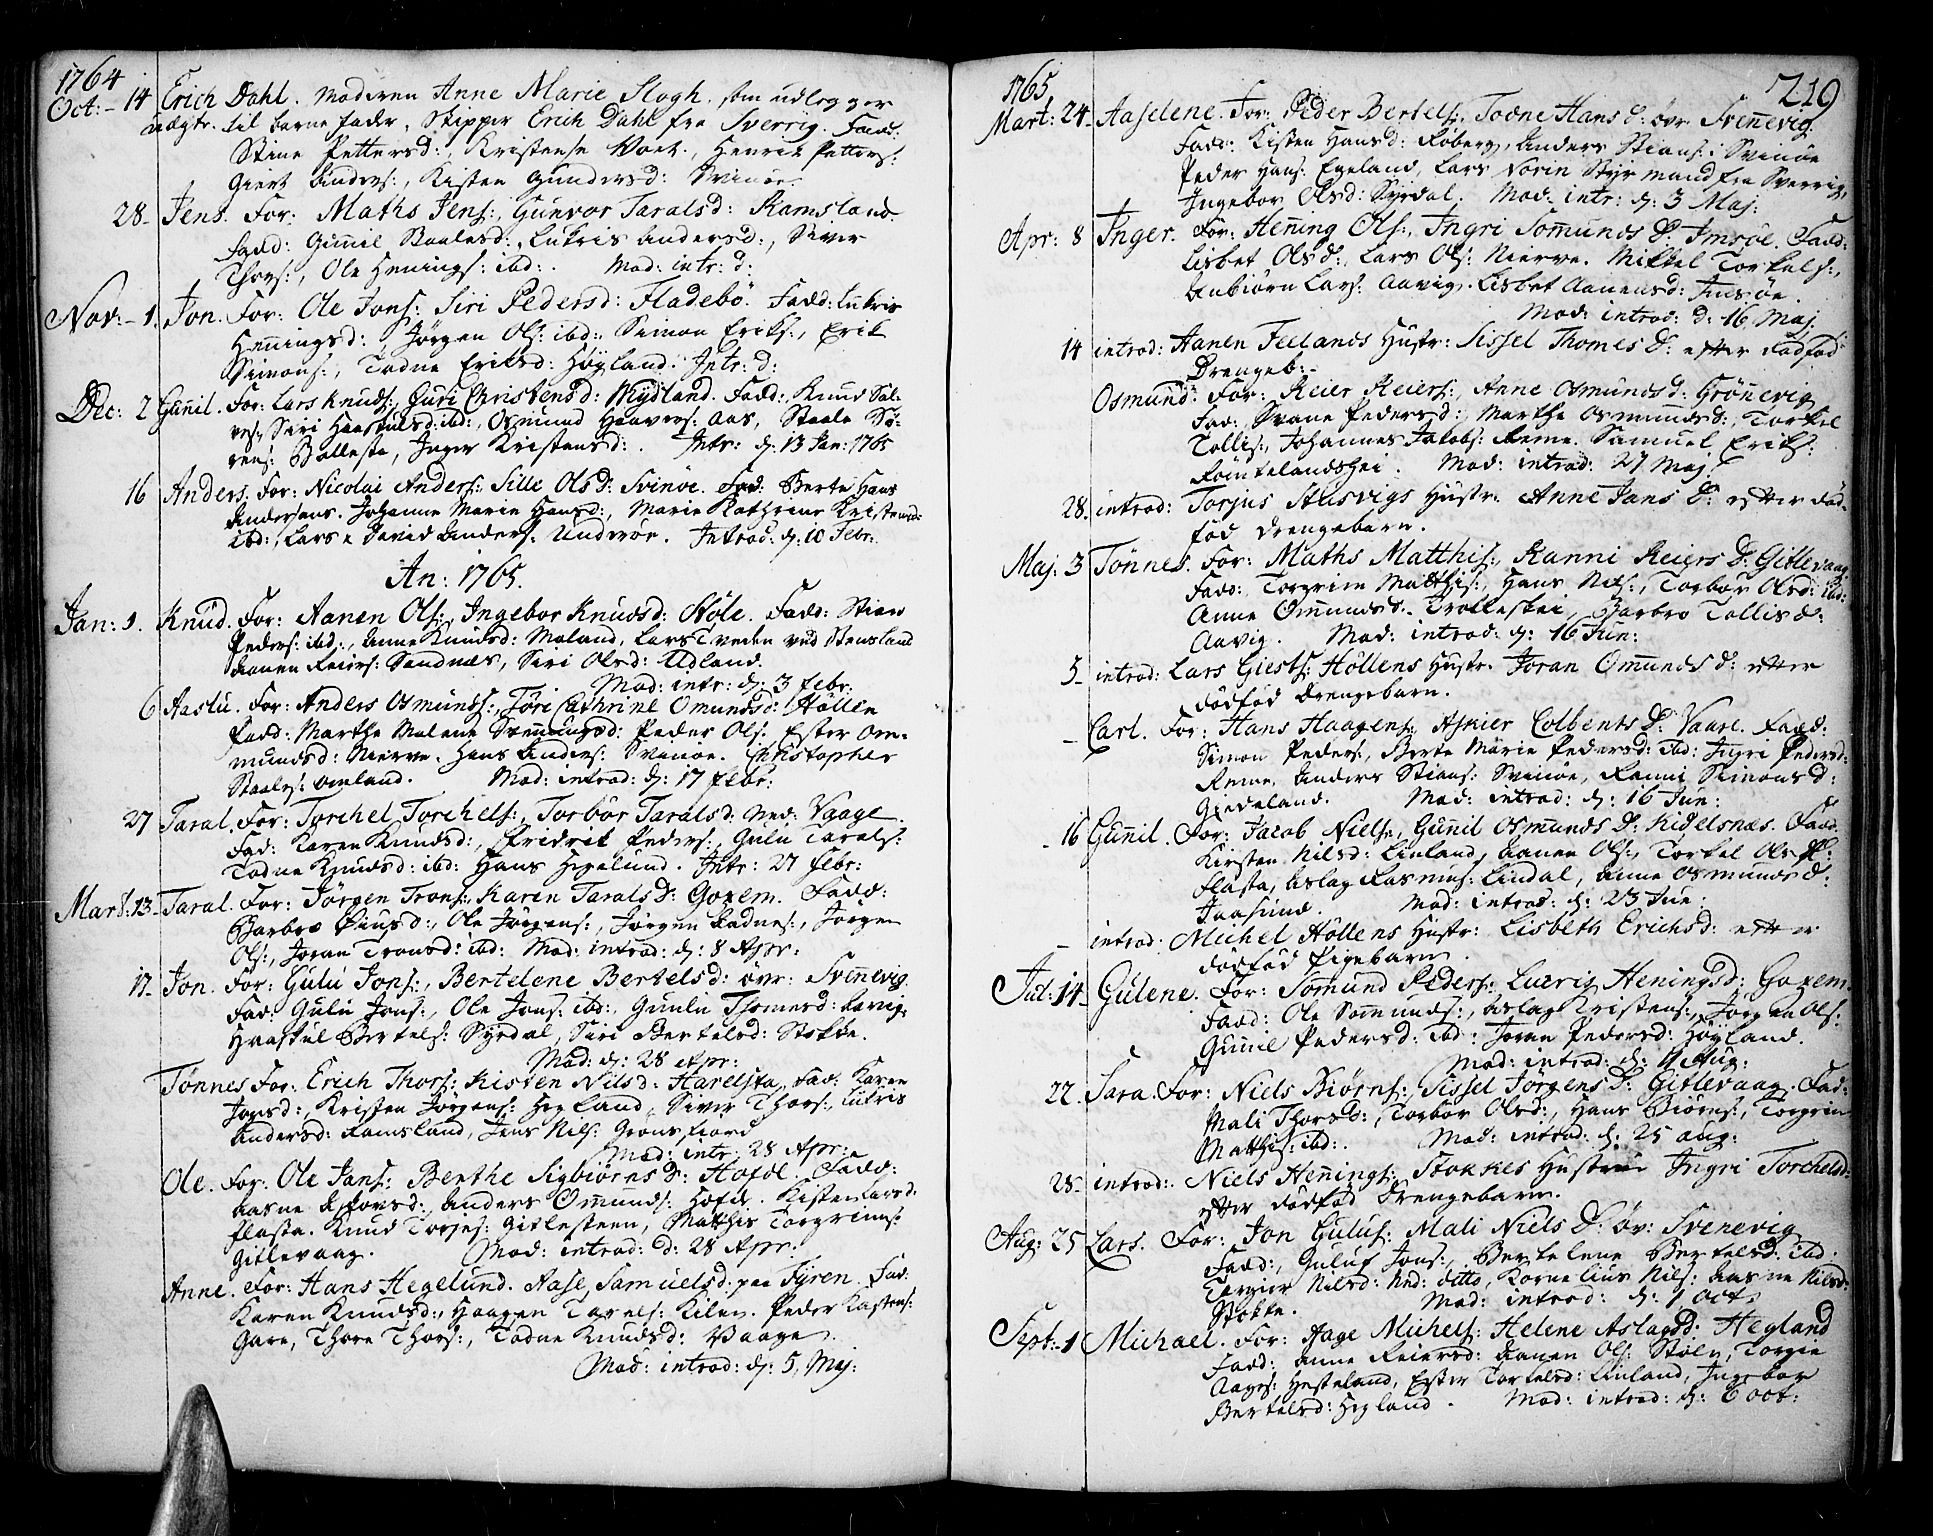 1764
Oct: - 14 Erich Dahl. Moderen Anne Marie Slogh. som udlegger
til barne fader, Skipper Erich Dahl fra Sverrig. Fadd:
Stine Pettersd:, Kristense Voet, Henrik Petters:
Giert Anders:, Kisten Gundersd: Svinöe.
28 - Jens. For: Maths Jens:, Gunvor Taralsd: Ramsland
Fadd: Gunil Staalesd:, Lukris Andersd:, Siver
Thors:, Ole Hennings: ibd:. Mod: intr: d:
Nov: - 1. Jon. For: Ole Jons: Siri Pedersd: Fladebö. Fadd: Lukris
Henningsd:, Jörgen Ols: ibd:, Simon Eriks:, Erik
Simons:, Todne Eriksd: Höyland. Intr: d:
Dec: 2 Gunil. For: Lars Knuds:, Guri Christensd: Mydland. Fadd: Knud Sal-
ves:, Siri Haaskulsd: ibd:, Osmund Haavors: Aas, Staale Sö-
rens: Bolleste, Inger Kristensd:. Intr: d: 13 Jan: 1765
16 Anders. For: Nicolai Anders: Sille Olsd: Svinöe. Fad: Berte Hans
Andersens. Johanne Marie Hansd:, Marie Kathrine Kristensd:
ibd:, Lars & David Anders: Underöe. Introd: d: 10 Febr:
An: 1765.
Jan: 1. Knud. For: Aanen Ols:, Ingebor Knudsd: Stöle. Fadd: Stian
Peders: ibd:, Anne Knudsd: Moland, Lars Tveden ved Stensland
Aanen Reiers: Sandnæs, Siri Olsd: Udland.
Mod: intr: d: 3 febr:
6 Aaslu. For: Anders Osmunds:, Töri Cathrine Omundsd: Höllen
Fadd: Marthe Malene Svennungsd: Peder Ols: Ester Om-
mundsd: Nierve. Hans Anders: Svinöe. Christopher
Staales: Omland. Mod: introd: d: 17 febr:
27 Taral. For: Torchel Torchels:, Torbör Taralsd: Ned: Vaage.
Fad: Karen Knudsd:, Fridrik Peders:, Gulu Tarals:
Todne Knudsd: ibd: Hans Hegelund. Intr: 27 febr:
Mart: 13 - Taral. For: Jörgen Trons:, Karen Taralsd: Gorem. Fadd:
Barbro Piusd:, Ole Jörgens:, Jörgen Aadnes:, Jörgen
Ols:, Joran Tronsd: ibd: Mod: introd: d: 8 Apr:
17 - Jon. For: Gulu Jons:, Bertelene Bertelsd: övr: Svennevig.
Fad: Gulu Jons:, Ole Jons: ibd: Gunlu Thomesd:
Haaskul Bertels: Syrdal, Siri Bertelsd: Stokke.
Mod: d: 28 Apr:
Tönnes For: Erich Thors: Kisten Nilsd: Harelsta, Fad: Karen
Jonsd:, Kristen Jörgens: Hegland, Siver Thors:, Lukris
Andersd: Ramsland, Jens Nils: Grönsfiord
Mod: intr: 28 Apr:
Ole. For: Ole Jans: Berthe Sigbiörnsd: Hofdl. Fadd:
Aasne Osfovsd:, Anders Omunds: Hofdl. Kisten Larsd:
Flasta. Knud Torjes: Gitlesteen, Matthis Torgrims:
Gitlevaag. Mod: introd: d: 28 Apr:
Anne. For: Hans Hegelund. Aase Samuelsd: paa Fyren. Fad:
Karen Knudsd:, Haagen Tarels: Kilen. Peder Kastens:
Gare, Thore Thors:, Todne Knudsd: Vaage.
Mod: introd: d: 5. Maj:
219
1765
Mart: 24 - Aaselene. For: Peder Bertels: Todne Hansd: övr. Svennevig.
Fadd: Kisten Hansd: Röberg, Anders Stians: Svinöe
Peder Hans: Egeland, Lars Norin Styrmand fra Sverrig,
Ingebor Olsd: Syrdal. Mod: intr: d: 3 Maj:
Apr: 8 Inger. For: Hening Ols:, Ingri Somunds D: Imsöe. Fadd:
Lisbet Olsd:, Lars Ols: Nierve. Mikkel Torkels:,
Anbiörn Lars: Aavig. Lisbet Aanensd: Imsöe.
Mod: introd: d: 16 Maj:
14 introd: Aanen Feelands Hustr: Sissel Thomes D: efter dödföd
Drengeb:-
Osmund. For: Reier Reiers:, Anne Osmundsd: Grönnevig
Fad: Svane Pedersd:, Marthe Osmundsd:, Torkel
Tollis:, Johannes Jakobs: Reme. Samuel Eriks:
Röintelandshei. Mod: introd: 27 Maj:
28. introd: Torjus Stusvigs Hustr. Anne Jans D: efter död-
föd drengebarn.
Maj: 3 Tönnes. For: Maths Matthis:, Ranni Reiers D: Gitlevaag
Fadd: Torgrim Matthis:, Hans Nils:, Torbör Olsd: ibd:
Anne Omundsd. Trolleskei, Barbro Tollisd:
Aavig. Mod: introd: d: 16 Jun:
5 - introd: Lars Giests: Höllens Hustr. Joran Omunds D: efter
dödföd Drengebarn.
- Carl. For: Hans Haagens:, Askier Colbents D: Vaare. Fadd:
Simon Peders, Berte Marie Pedersd: ibd: Ingri Pedersd:
Reme. Anders Stians: Svinöe, Ranni Simonsd:
Giedeland. Mod: introd: d: 16 Jun:
- 16 Gunil. For: Jacob Niels:, Gunil Osmunds D: Kidelsnæs. Fadd
Kirsten Nilsd: Linland, Aanen Ols:, Torkel Ols:
Flasta, Aslag Rasmus: Lindal, Anne Osmundsd:
Jaasund. Mod: introd: d: 23 Jun:
- introd: Michel Höllens Hustr: Lisbeth Erichsd: efter
dödföd Pigebarn.
Jul: 14 - Gulene. For: Somund Peders: Luerig Heningsd: Gorem.
Fadd: Ole Sommunds:, Aslag Kristens:, Jörgen Ols:
Gunnil Pedersd: ibd: Joren Pedersd: Höyland.
Mod: introd: d: Aug:
22. Sara. For: Niels Biörns:, Sissel Jorgens D: Gitlevaag. Fad:
Mali Thorsd:, Torbör Olsd:, Hans Biörns:, Torgrim
Matthis: ibd:. Mod: introd: d: 25 Aug:
28 - introd: Niels Henings: Stokkes Hustrue Ingri Torchelsd:
efter dödföd Drengebarn.
Aug: 25 Lars. For: Jon Gulus: Mali Niels D: öv: Svenevig
Fadd:, Guluf Jons:, Bertelene Bertelsd: ibd:
Torgier Nilsd: Ned: ditto, Kornelius Nils: Aasne Nilsd:
Stokke. Mod: introd: d: 1 Oct:
Sept: - 1 Michael. For: Aage Michels: Helene Aslagsd: Hegland
Fadd: Anne Reiersd: Aanen Ols: Stöle, Torgie
Aages: Hesteland, Ester Torkelsd: Linland, Ingebor
Bertelsd: Hegland. Mod: introd: d: 6 Oct: